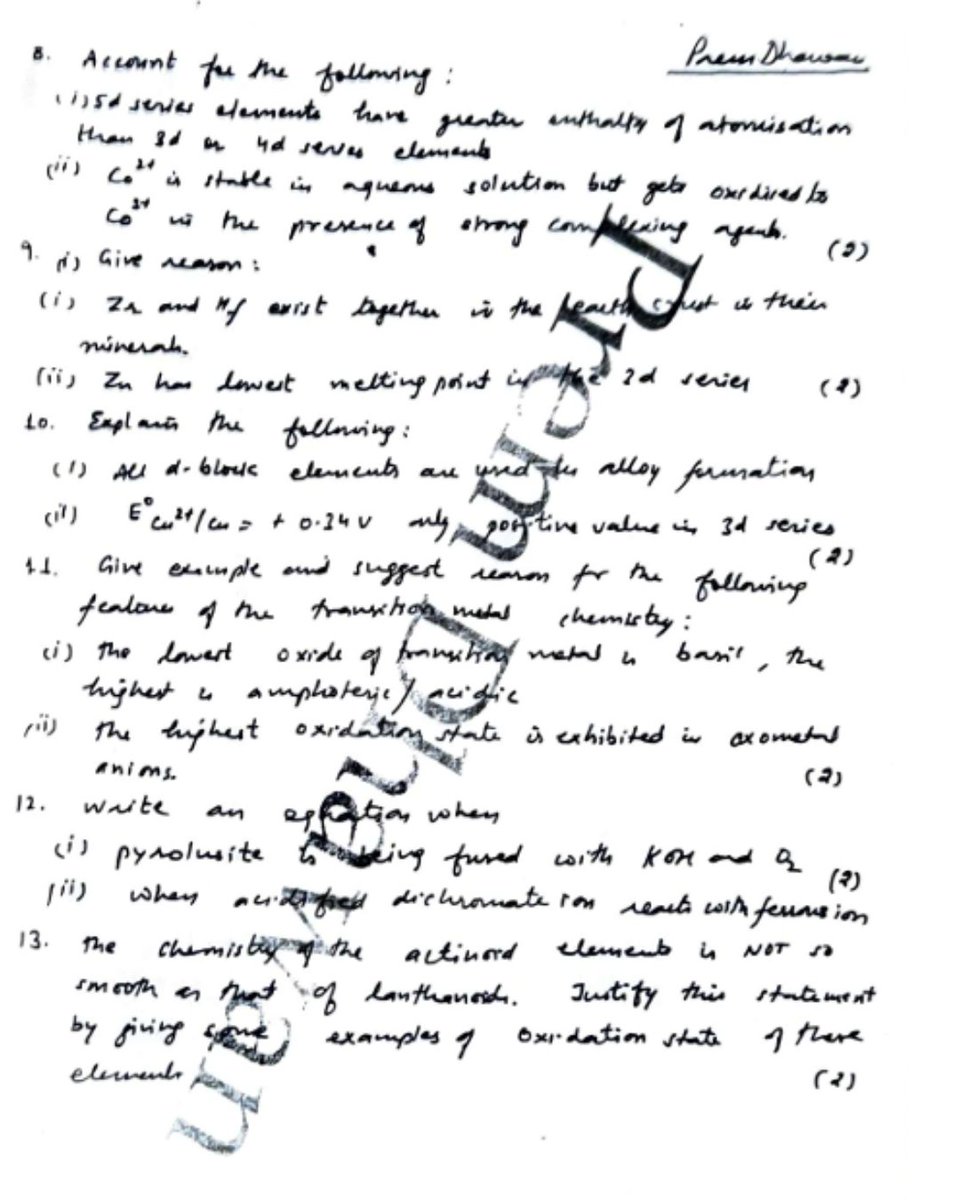 Prem Dhawan
8. Account for the following :
(i) 5d series elements have greater enthalpy of atomisation
than 3d or 4d series elements
(ii) Co²⁺ is stable in aqueous solution but gets oxidised to
Co³⁺ in the presence of strong complexing agents. (2)
9. (i) Give reason :
(i) Zr and Hf exist together in the earth crust in their
minerals.
(ii) Zn has lowest melting point in the 3d series (2)
10. Explain the following :
(i) All d-block elements are used for alloy formation
(ii) E° Cu²⁺/Cu = + 0.34 V only positive value in 3d series
(2)
11. Give example and suggest reason for the following
features of the transition metal chemistry :
(i) The lowest oxide of transition metal is basic, the
highest is amphoteric / acidic
(ii) The highest oxidation state is exhibited in oxometal
anions. (2)
12. Write an equation when
(i) pyrolusite is being fused with KOH and O₂ (2)
(ii) when acidified dichromate ion reacts with ferrous ion
13. The chemistry of the actinoid elements is NOT so
smooth as that of lanthanoids. Justify this statement
by giving some examples of oxidation state of these
elements (2)
Prem Dhawan